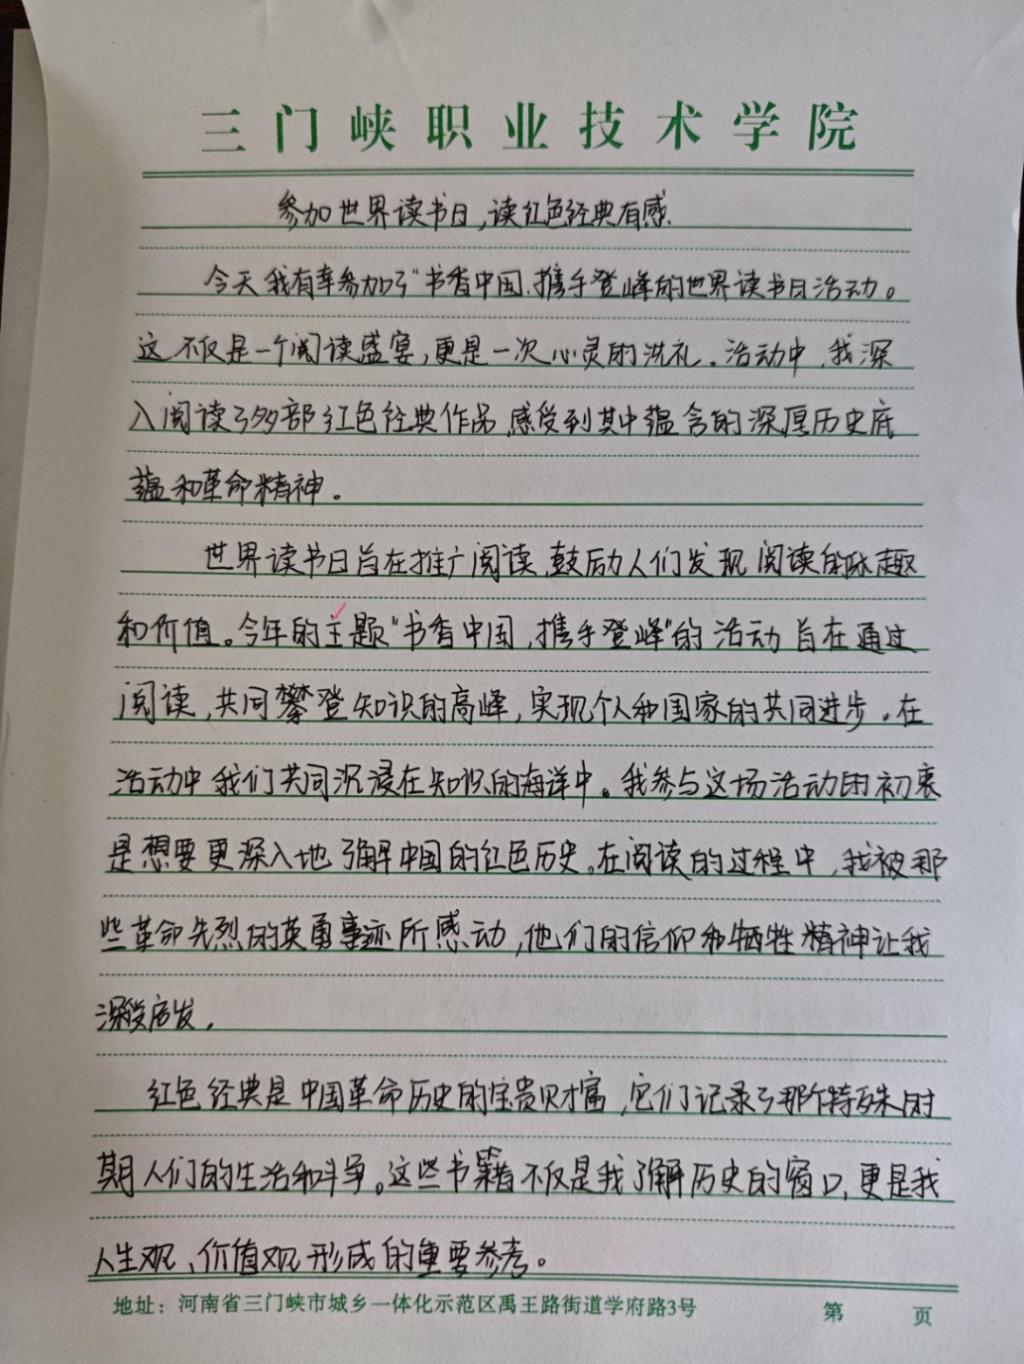 三门峡职业技术学院
参加世界读书日,读红色经典有感.
今天我有幸参加了“书香中国、携手登峰的世界读书日活动。
这不仅是一个阅读盛宴,更是一次心灵的洗礼。活动中,我深
入阅读了多部红色经典作品,感受到其中蕴含的深厚历史底
蕴和革命精神。
世界读书日旨在推广阅读,鼓励人们发现阅读的乐趣
和价值。今年的主题“书香中国,携手登峰”的活动旨在通过
阅读,共同攀登知识的高峰,实现个人和国家的共同进步。在
活动中我们共同沉浸在知识的海洋中。我参与这场活动的初衷
是想要更深入地了解中国的红色历史。在阅读的过程中,我被那
些革命先烈的英勇事迹所感动,他们的信仰和牺牲精神让我
深受启发。
红色经典是中国革命历史的宝贵财富,它们记录了那个特殊时
期人们的生活和斗争。这些书籍不仅是我了解历史的窗口,更是我
人生观、价值观形成的重要参考。
地址:河南省三门峡市城乡一体化示范区禹王路街道学府路3号 第 页